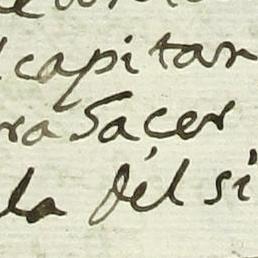 capitan
ra Sacer
la del si